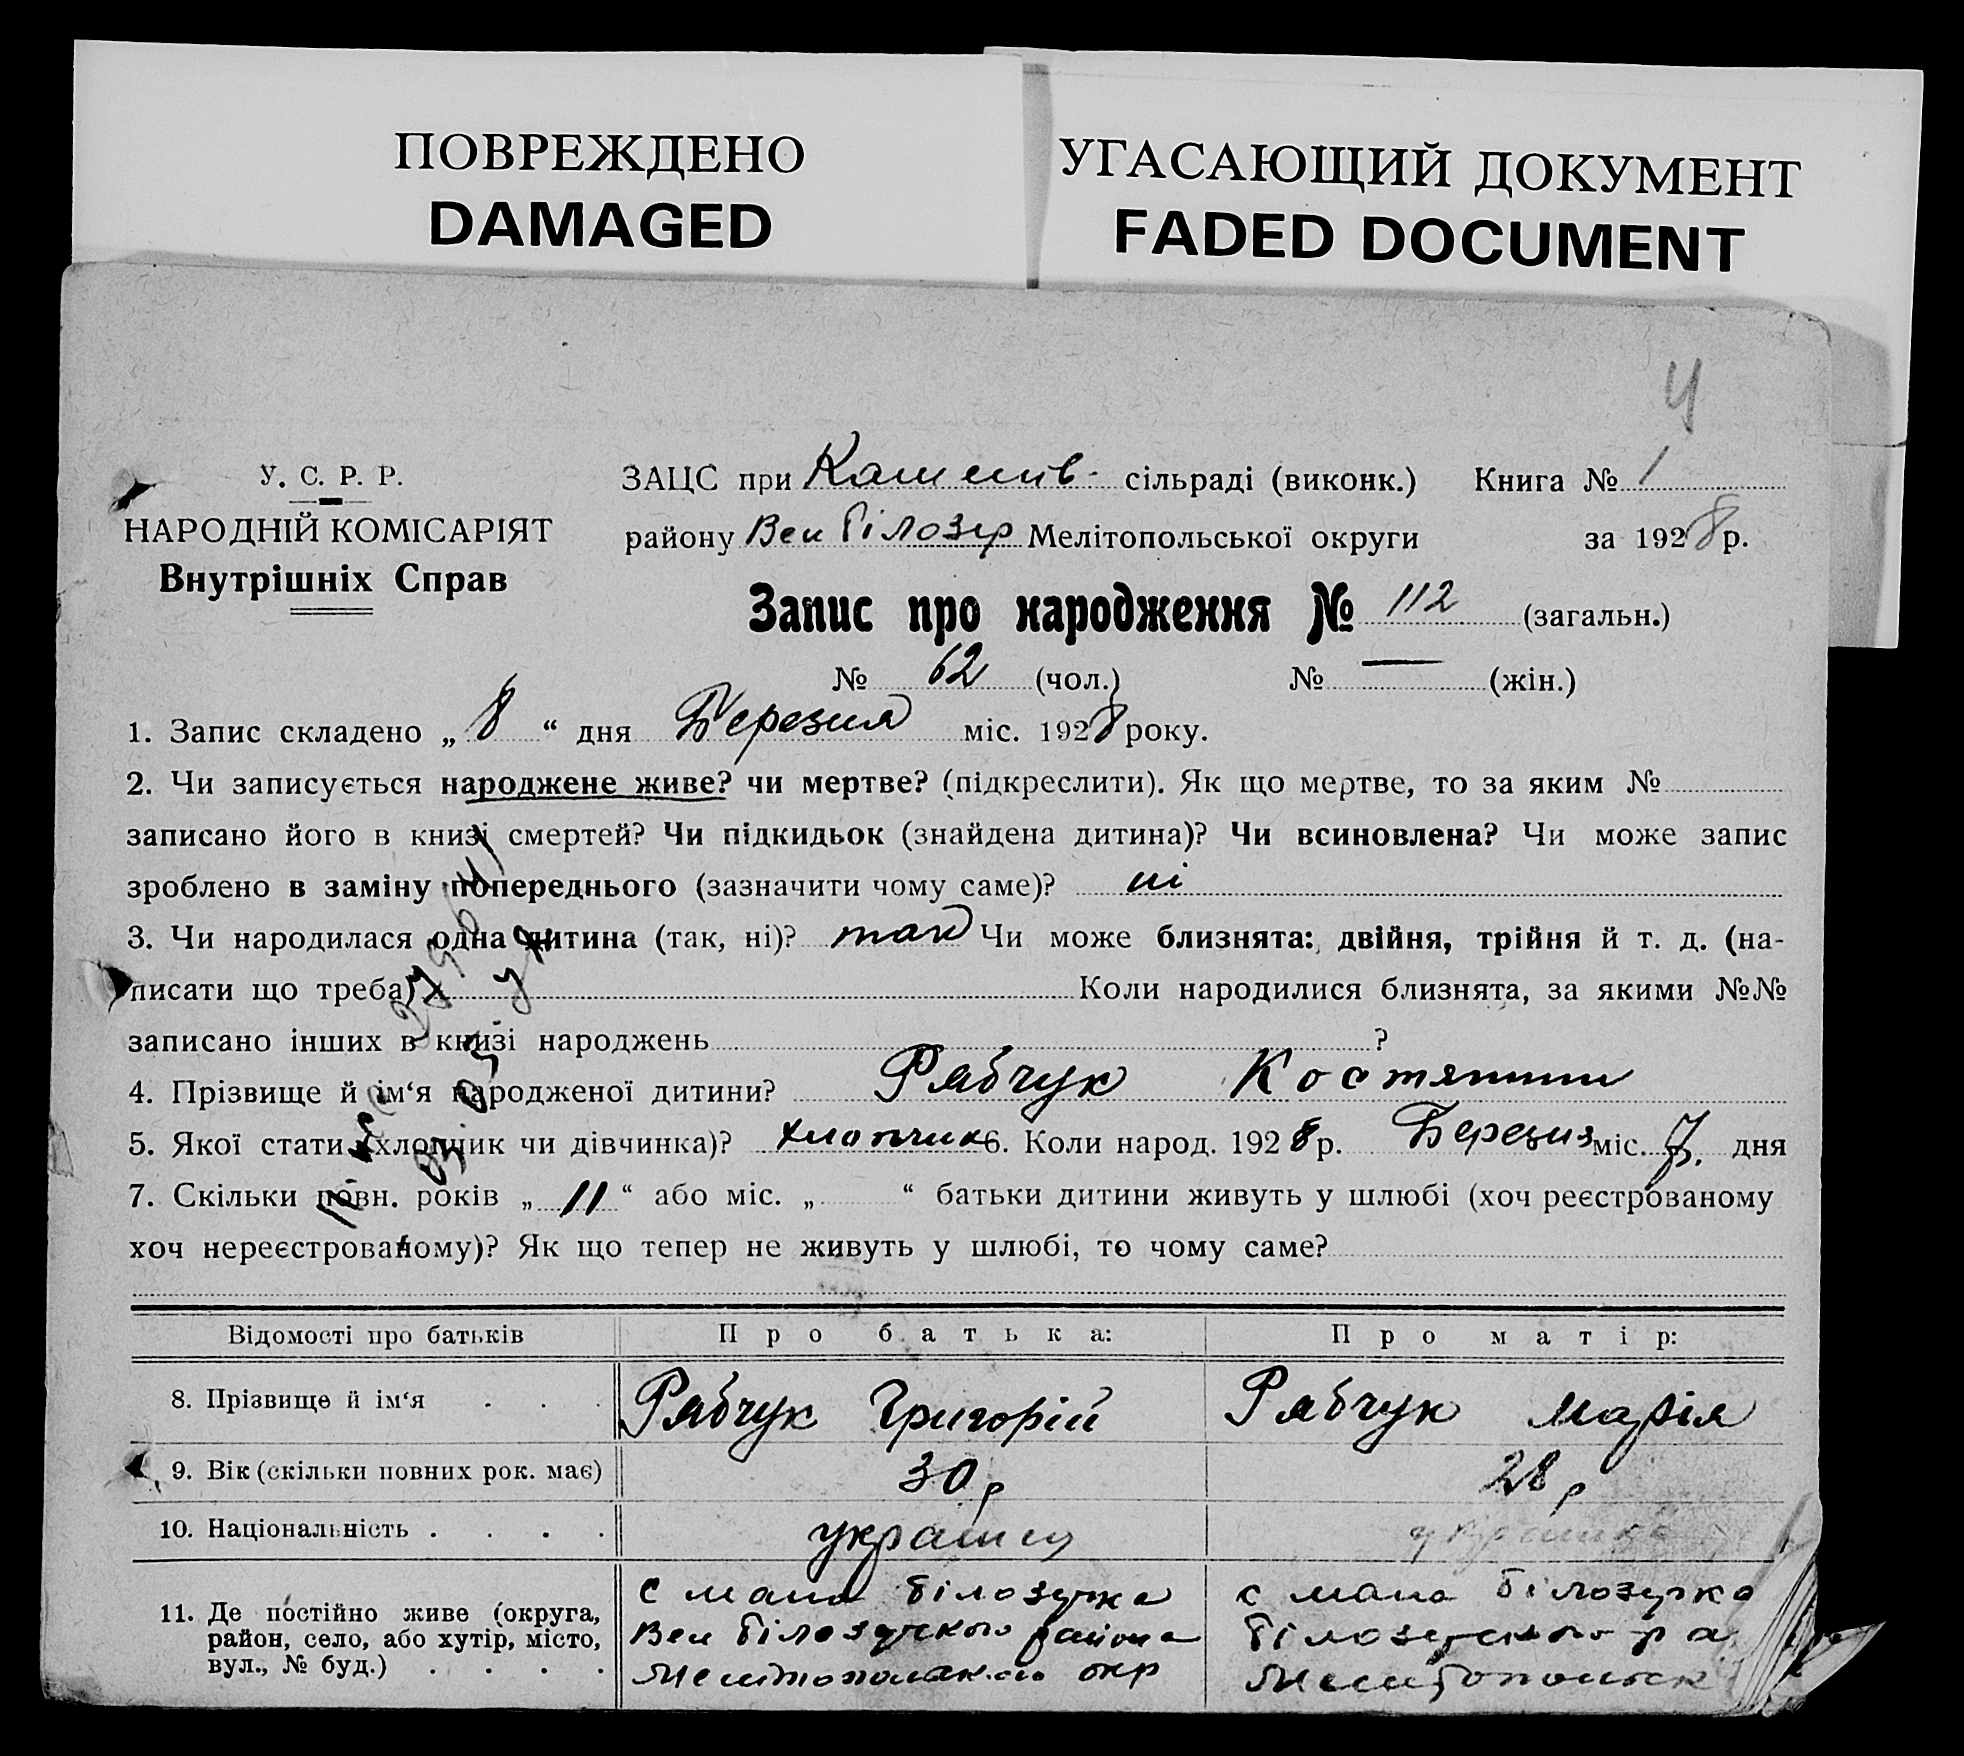 ПОВРЕЖДЕНО
DAMAGED
УГАСАЮЩИЙ ДОКУМЕНТ
FADED DOCUMENT
4
У. С. Р. Р.
НАРОДНІЙ КОМІСАРІЯТ
Внутрішніх Справ
ЗАЦС при сільраді (виконк.) Книга № 1
району Вел Білозер Мелітопольської округи за 1928 р.
Запис про народження № 112 (загальн.)
№ 62 (чол.) № — (жін.)
1. Запис складено „ 8 “ дня Березня міс. 1928 року.
2. Чи записується народжене живе? чи мертве? (підкреслити). Як що мертве, то за яким №
записано його в книзі смертей? Чи підкидьок (знайдена дитина)? Чи всиновлена? Чи може запис
зроблено в заміну попереднього (зазначити чому саме)? ні
3. Чи народилася одна дитина (так, ні)? так Чи може близнята: двійня, трійня й т. д. (на-
писати що треба) Коли народилися близнята, за якими №№
записано інших в книзі народжень ?
4. Прізвище й ім‘я народженої дитини? Рябчук Костянтин
5. Якої стати (хлопчик чи дівчинка)? хлопчик 6. Коли народ. 1928 р. Березня міс. 7. дня
7. Скільки повн. років „ 11 “ або міс. „ “ батьки дитини живуть у шлюбі (хоч реєстрованому
хоч нереєстрованому)? Як що тепер не живуть у шлюбі, то чому саме?
Відомості про батьків Про батька: Про матір:
8. Прізвище й ім‘я . . . Рябчук Григорій Рябчук Марія
9. Вік (скільки повних рок. має) 30 р 28 р
10. Національність . . . . українц українка
11. Де постійно живе (округа, район, село, або хутір, місто, вул., № буд.) . . . .
с мала Білозерка
Вел Білозерского района
Мелітопольск окр
с мала Білозерка
Білозерского ра
Мелітопольск